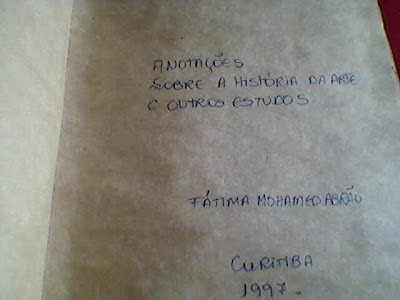 ANOTAÇÕES
SOBRE A HISTÓRIA DA ARTE
E OUTROS ESTUDOS
FÁTIMA MOHAMED ABRÃO
CURITIBA
1997.